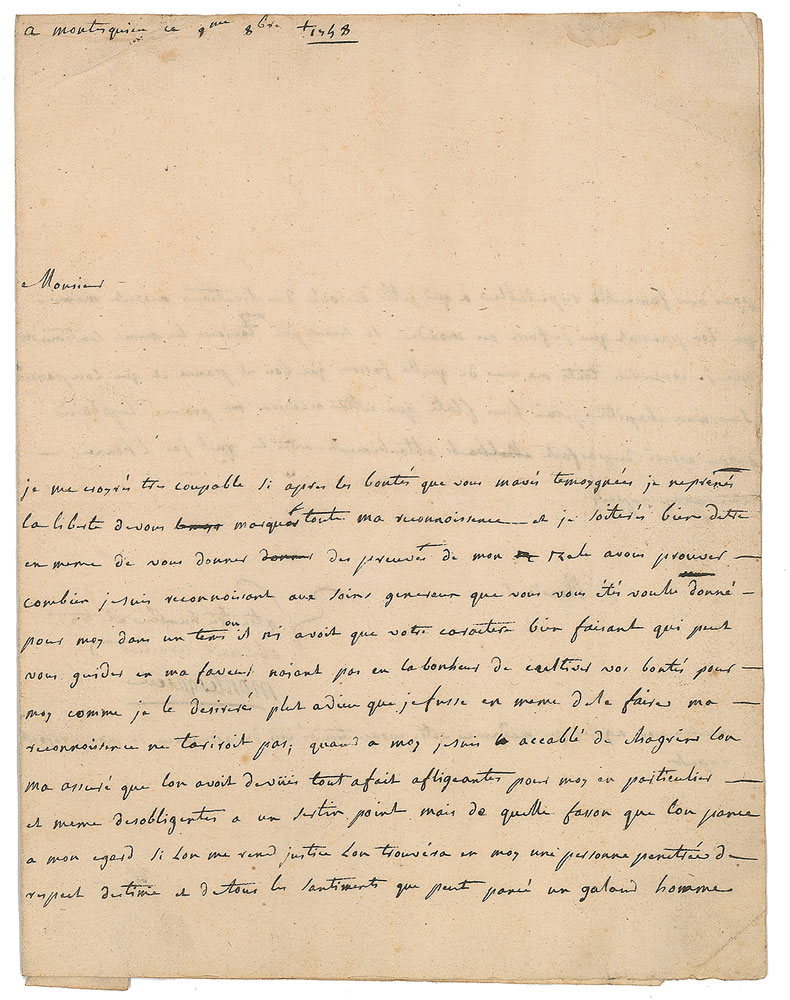 a montesquieu ce 9me 8bre 1748
Monsieur
je me croyrés tres coupable si apres les bontés que vous mavés temoygnées je neprenés
la liberté devous marquer toute ma reconnoissence et je soiterés bien detre
en meme de vous donner des preuves de mon zele avous prouver
combien jesuis reconnoisant aux soins genereux que vous vous étés voulu donné
pour moy dans un tems ou il ni avoit que votre caractere bien faisant qui peut
vous guider en ma faveur naiant pas eu la bonheur de cultiver vos bontés pour
moy comme je le desireré plut adieu que jefusse en meme dele faire ma
reconnoissence ne tariroit pas, quand a moy jesuis accablé de chagrin lon
ma assuré que lon avoit devües tout afait afligeantes pour moy en particulier
et meme desobligentes a un sertin point mais de quelle fasson que lon pance
a mon egard si lon me rend justice lon trouvéra en moy une personne penetrée de
respect destime et detous les santiments que peut pancé un galand homme